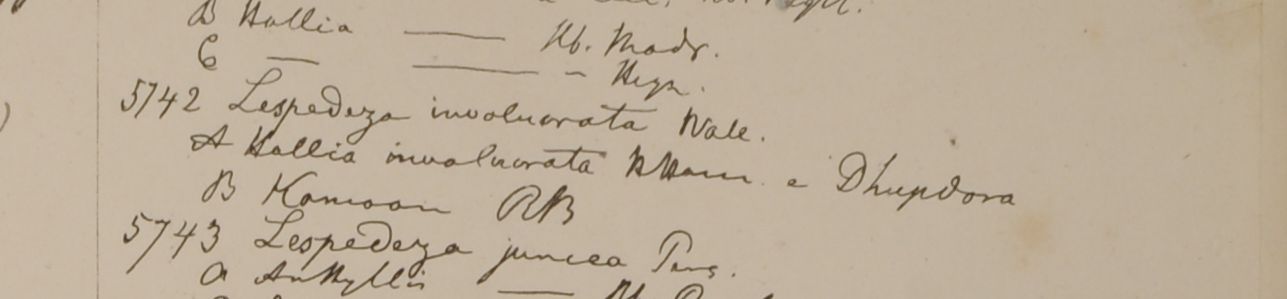 B Hallia — Hb. Madr.
C — — - Heyn.
5742 Lespedeza involucrata Wall.
A Hallia involucrata e Dhupdora
B Kamoon RB
5743 Lespedeza juncea Pers.
a Anthyllis —